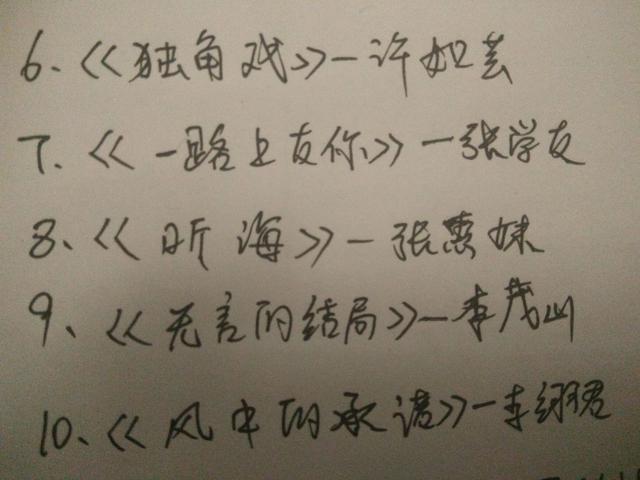 6、《独角戏》—许如芸
7、《一路上友你》—张学友
8、《听海》—张惠妹
9、《无言的结局》—李茂山
10、《风中的承诺》—李翊君